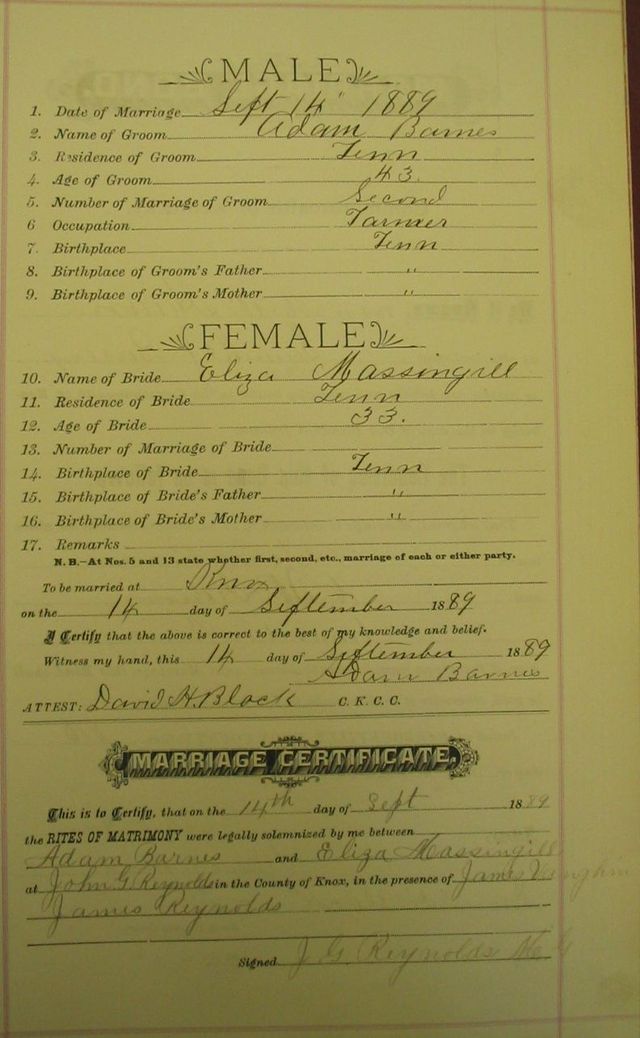 MALE
1. Date of Marriage Sept 14" 1889
2. Name of Groom Adam Barnes
3. Residence of Groom Tenn
4. Age of Groom 43.
5. Number of Marriage of Groom Second
6 Occupation Farmer
7. Birthplace Tenn
8. Birthplace of Groom's Father "
9. Birthplace of Groom's Mother "
FEMALE
10. Name of Bride Eliza Massingill
11. Residence of Bride Tenn
12. Age of Bride 33.
13. Number of Marriage of Bride
14. Birthplace of Bride Tenn
15. Birthplace of Bride's Father "
16. Birthplace of Bride's Mother "
17. Remarks
N. B.—At Nos. 5 and 13 state whether first, second, etc., marriage of each or either party.
To be married at Knox
on the 14 day of September 1889
I Certify that the above is correct to the best of my knowledge and belief.
Witness my hand, this 14 day of September 1889
Adam Barnes
ATTEST: David H. Black C. K. C. C.
MARRIAGE CERTIFICATE.
This is to Certify, that on the 14th day of Sept 1889
the RITES OF MATRIMONY were legally solemnized by me between
Adam Barnes and Eliza Massingill
at John G. Reynolds in the County of Knox, in the presence of James
James Reynolds
Signed J. G. Reynolds